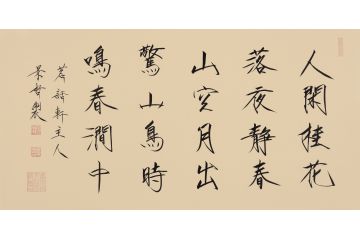 人閑桂花
落夜靜春
山空月出
驚山鳥時
鳴春澗中
軒主人